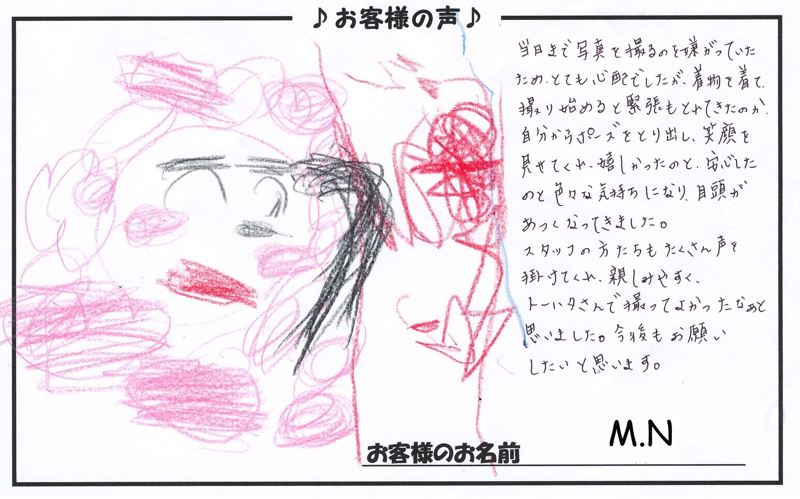 ♪お客様の声♪
当日まで写真を撮るのを嫌がっていた
ため、とても心配でしたが、着物を着て、
撮り始めると緊張もとれてきたのか、
自分からポーズをとり出し、笑顔を
見せてくれ、嬉しかったのと、安心した
のと色々な気持ちになり、目頭が
あつくなってきました。
スタッフの方たちもたくさん声を
掛けてくれ、親しみやすく、
トーハタさんで撮ってよかったなぁと
思いました。今後もお願い
したいと思います。
お客様のお名前
M.N